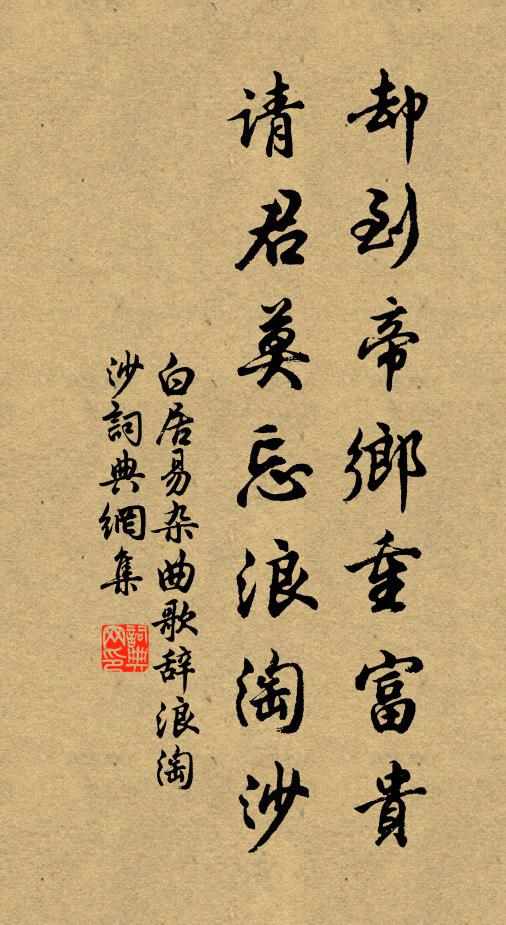 却到帝鄉重富貴
请君莫忘浪淘沙
白居易杂曲歌辞浪淘
沙詞典網集
詞典
网印